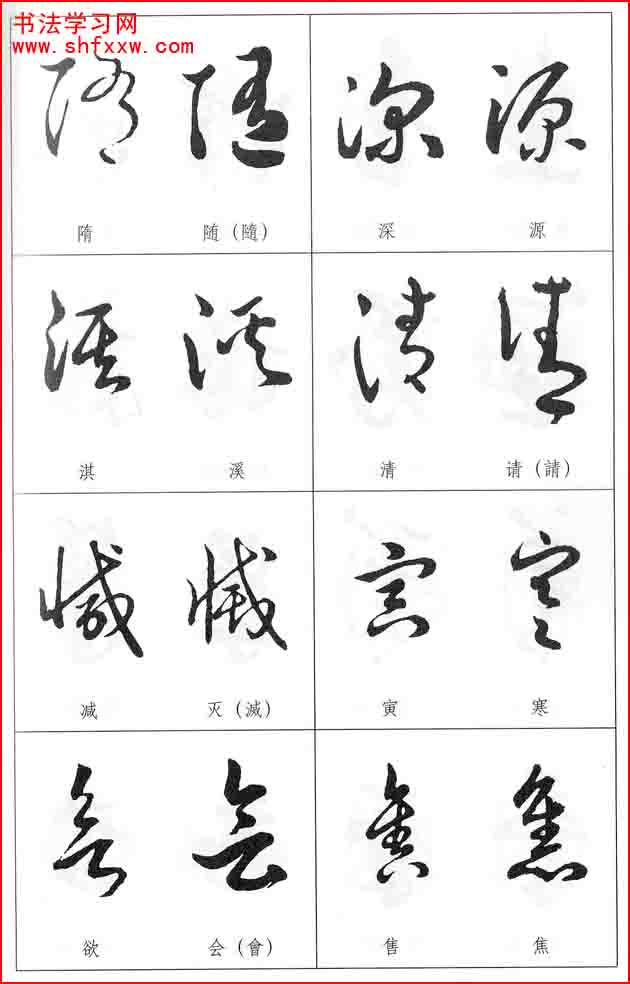 书法学习网
www.shfxxw.com
隋 随（隨） 深 源
淇 溪 清 请（請）
减 灭（滅） 寅 寒
欲 会（會） 售 焦